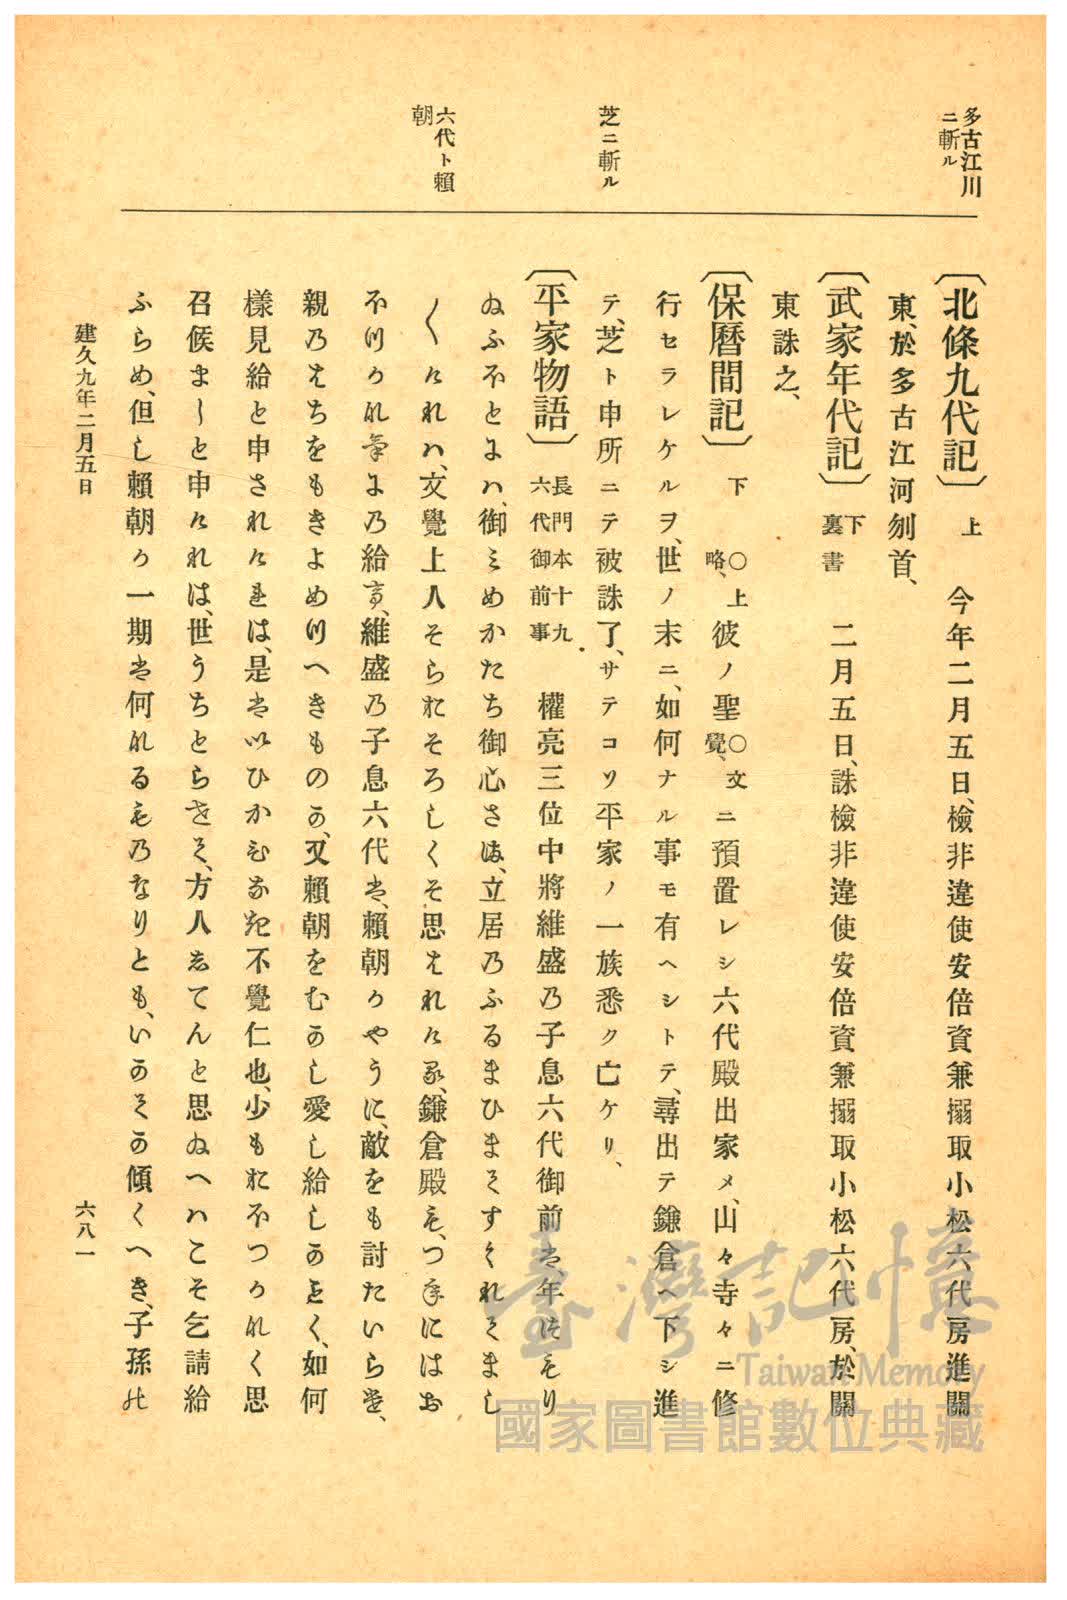 多古江川
ニ斬ル
芝ニ斬ル
六代ト賴
朝
〔北條九代記〕上 今年二月五日、檢非違使安倍資兼搦取小松六代房進關
東、於多古江河刎首、
〔武家年代記〕下裏書 二月五日、誅檢非違使安倍資兼搦取小松六代房、於關
東誅之、
〔保曆間記〕下 〇上略、彼ノ聖〇文覺、ニ預置レシ六代殿出家メ、山々寺々ニ修
行セラレケルヲ、世ノ末ニ、如何ナル事モ有ヘシトテ、尋出テ鎌倉ヘ下シ進
テ、芝ト申所ニテ被誅了、サテコソ平家ノ一族悉ク亡ケリ、
〔平家物語〕長門本十九六代御前事 權亮三位中將維盛乃子息六代御前は、年はもり
ゐふ不とよハ、御みめかたち御心さは、立居乃ふるまひまてすくれてまし
〱けれハ、文覺上人そらおそろしくそ思はれける、鎌倉殿も、つ年にはお
不つかれ年よ乃給ひ、維盛乃子息六代は、賴朝かやうに、敵をも討たいらけ、
親乃はちをもきよめつへきものか、又賴朝をむかし愛し給しかことく、如何
樣見給と申されけれは、是はいひかひなき不覺仁也、少もおほつかれく思
召候ましと申けれは、世うちとらはそ、方人してんと思ゐへハこそ乞請給
ふらめ、但し賴朝か一期は何れるも乃なりとも、いかてか傾くへき、子孫の
建久九年二月五日
六八一
臺灣記憶
Taiwan Memory
國家圖書館數位典藏